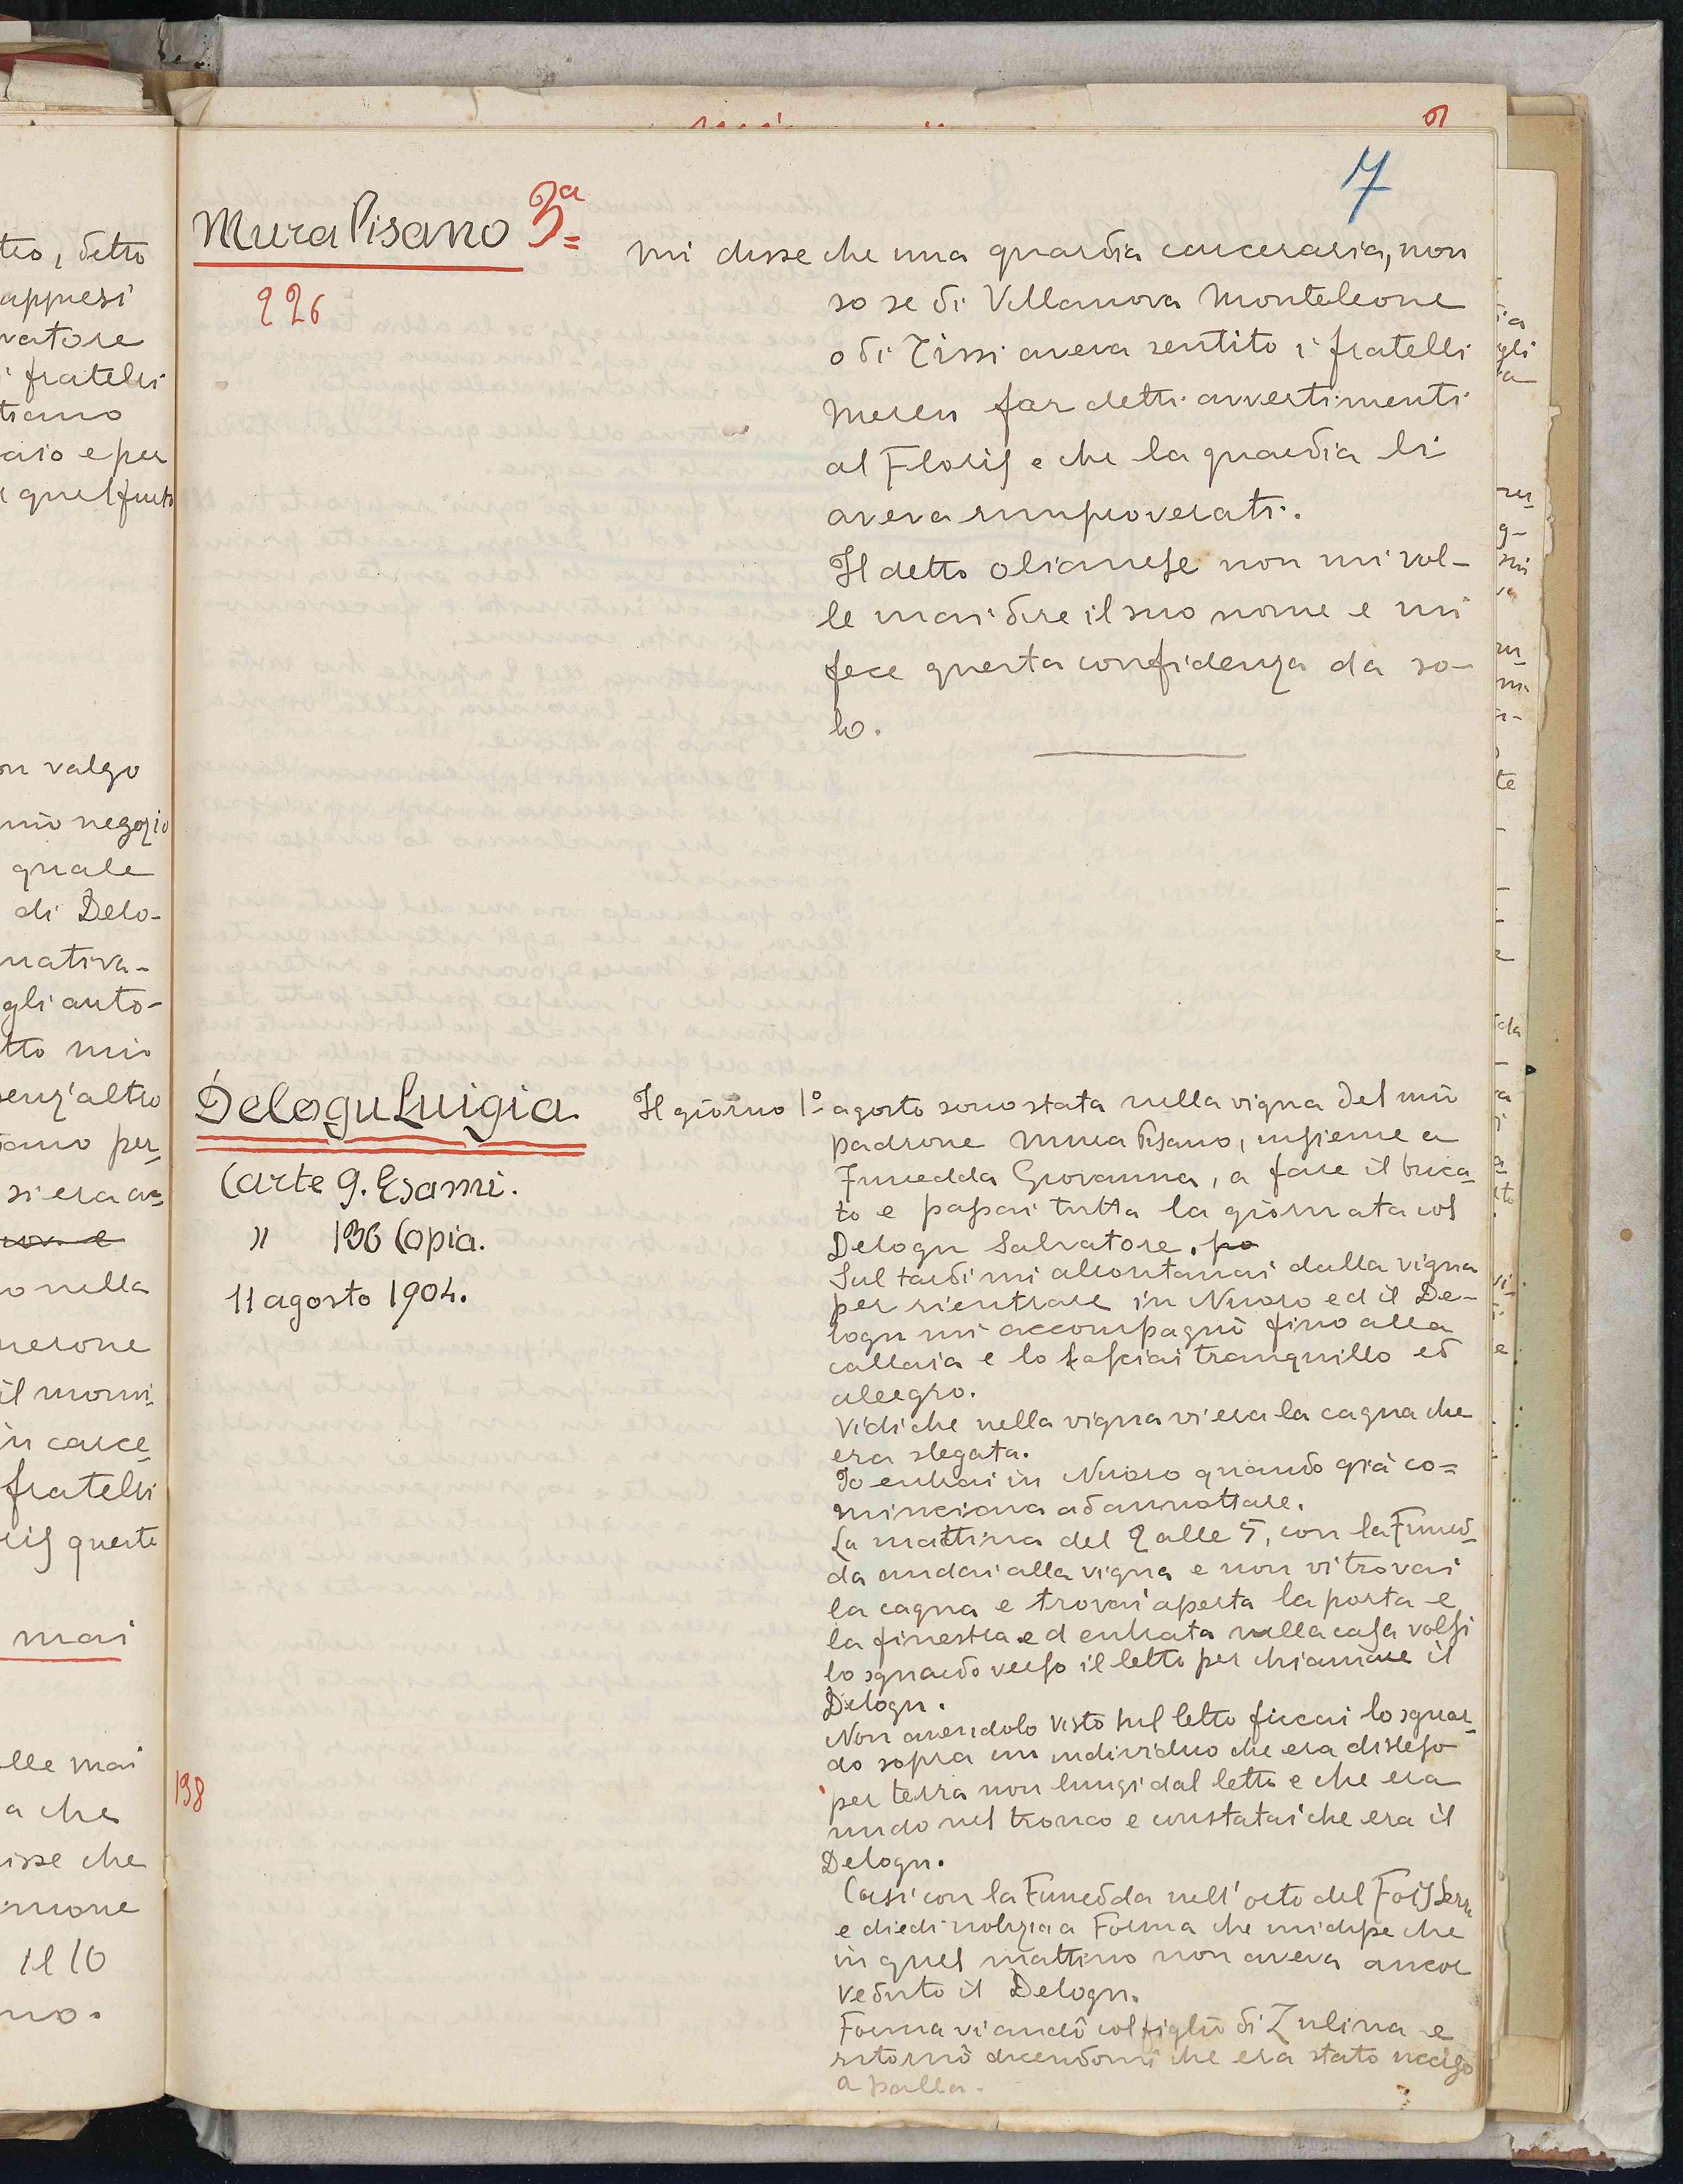 7
Mura Pisano 3ª
226
mi disse che una guardia carceraria, non
so se di Villanova Monteleone
o di Tissi aveva sentito i fratelli
Mereu far detti avvertimenti
al Floris e che la guardia li
aveva rimproverati.
Il detto olianese non mi vol-
le mai dire il suo nome e mi
fece questa confidenza da so-
lo.
Delogu Luigia
Carte 9. Esami.
" 136 Copia.
11 agosto 1904.
Il giorno 1º agosto sono stata nella vigna del mio
padrone Mura Pisano, insieme a
Funedda Giovanna, a fare il buca-
to e passai tutta la giornata col
Delogu Salvatore.
Sul tardi mi allontanai dalla vigna
per rientrare in Nuoro ed il De-
logu mi accompagnò fino alla
callaia e lo lasciai tranquillo ed
allegro.
Vidi che nella vigna vi era la cagna che
era slegata.
Io entrai in Nuoro quando già co=
minciava ad annottare.
La mattina del 2 alle 5, con la Funed-
da andai alla vigna e non vi trovai
la cagna e trovai aperta la porta e
la finestra ed entrata nella casa volsi
lo sguardo verso il letto per chiamare il
Delogu.
Non avendolo visto sul letto ficcai lo sguar-
do sopra un individuo che era disteso
198
per terra non lungi dal letto e che era
nudo nel tronco e constatai che era il
Delogu.
Corsi con la Funedda nell'orto del Fois Serra
e diedi notizia a Forma che mi disse che
in quel mattino non aveva ancor
veduto il Delogu.
Forma vi andò col figlio di Zulina e
ritornò dicendomi che era stato ucciso
a palla.